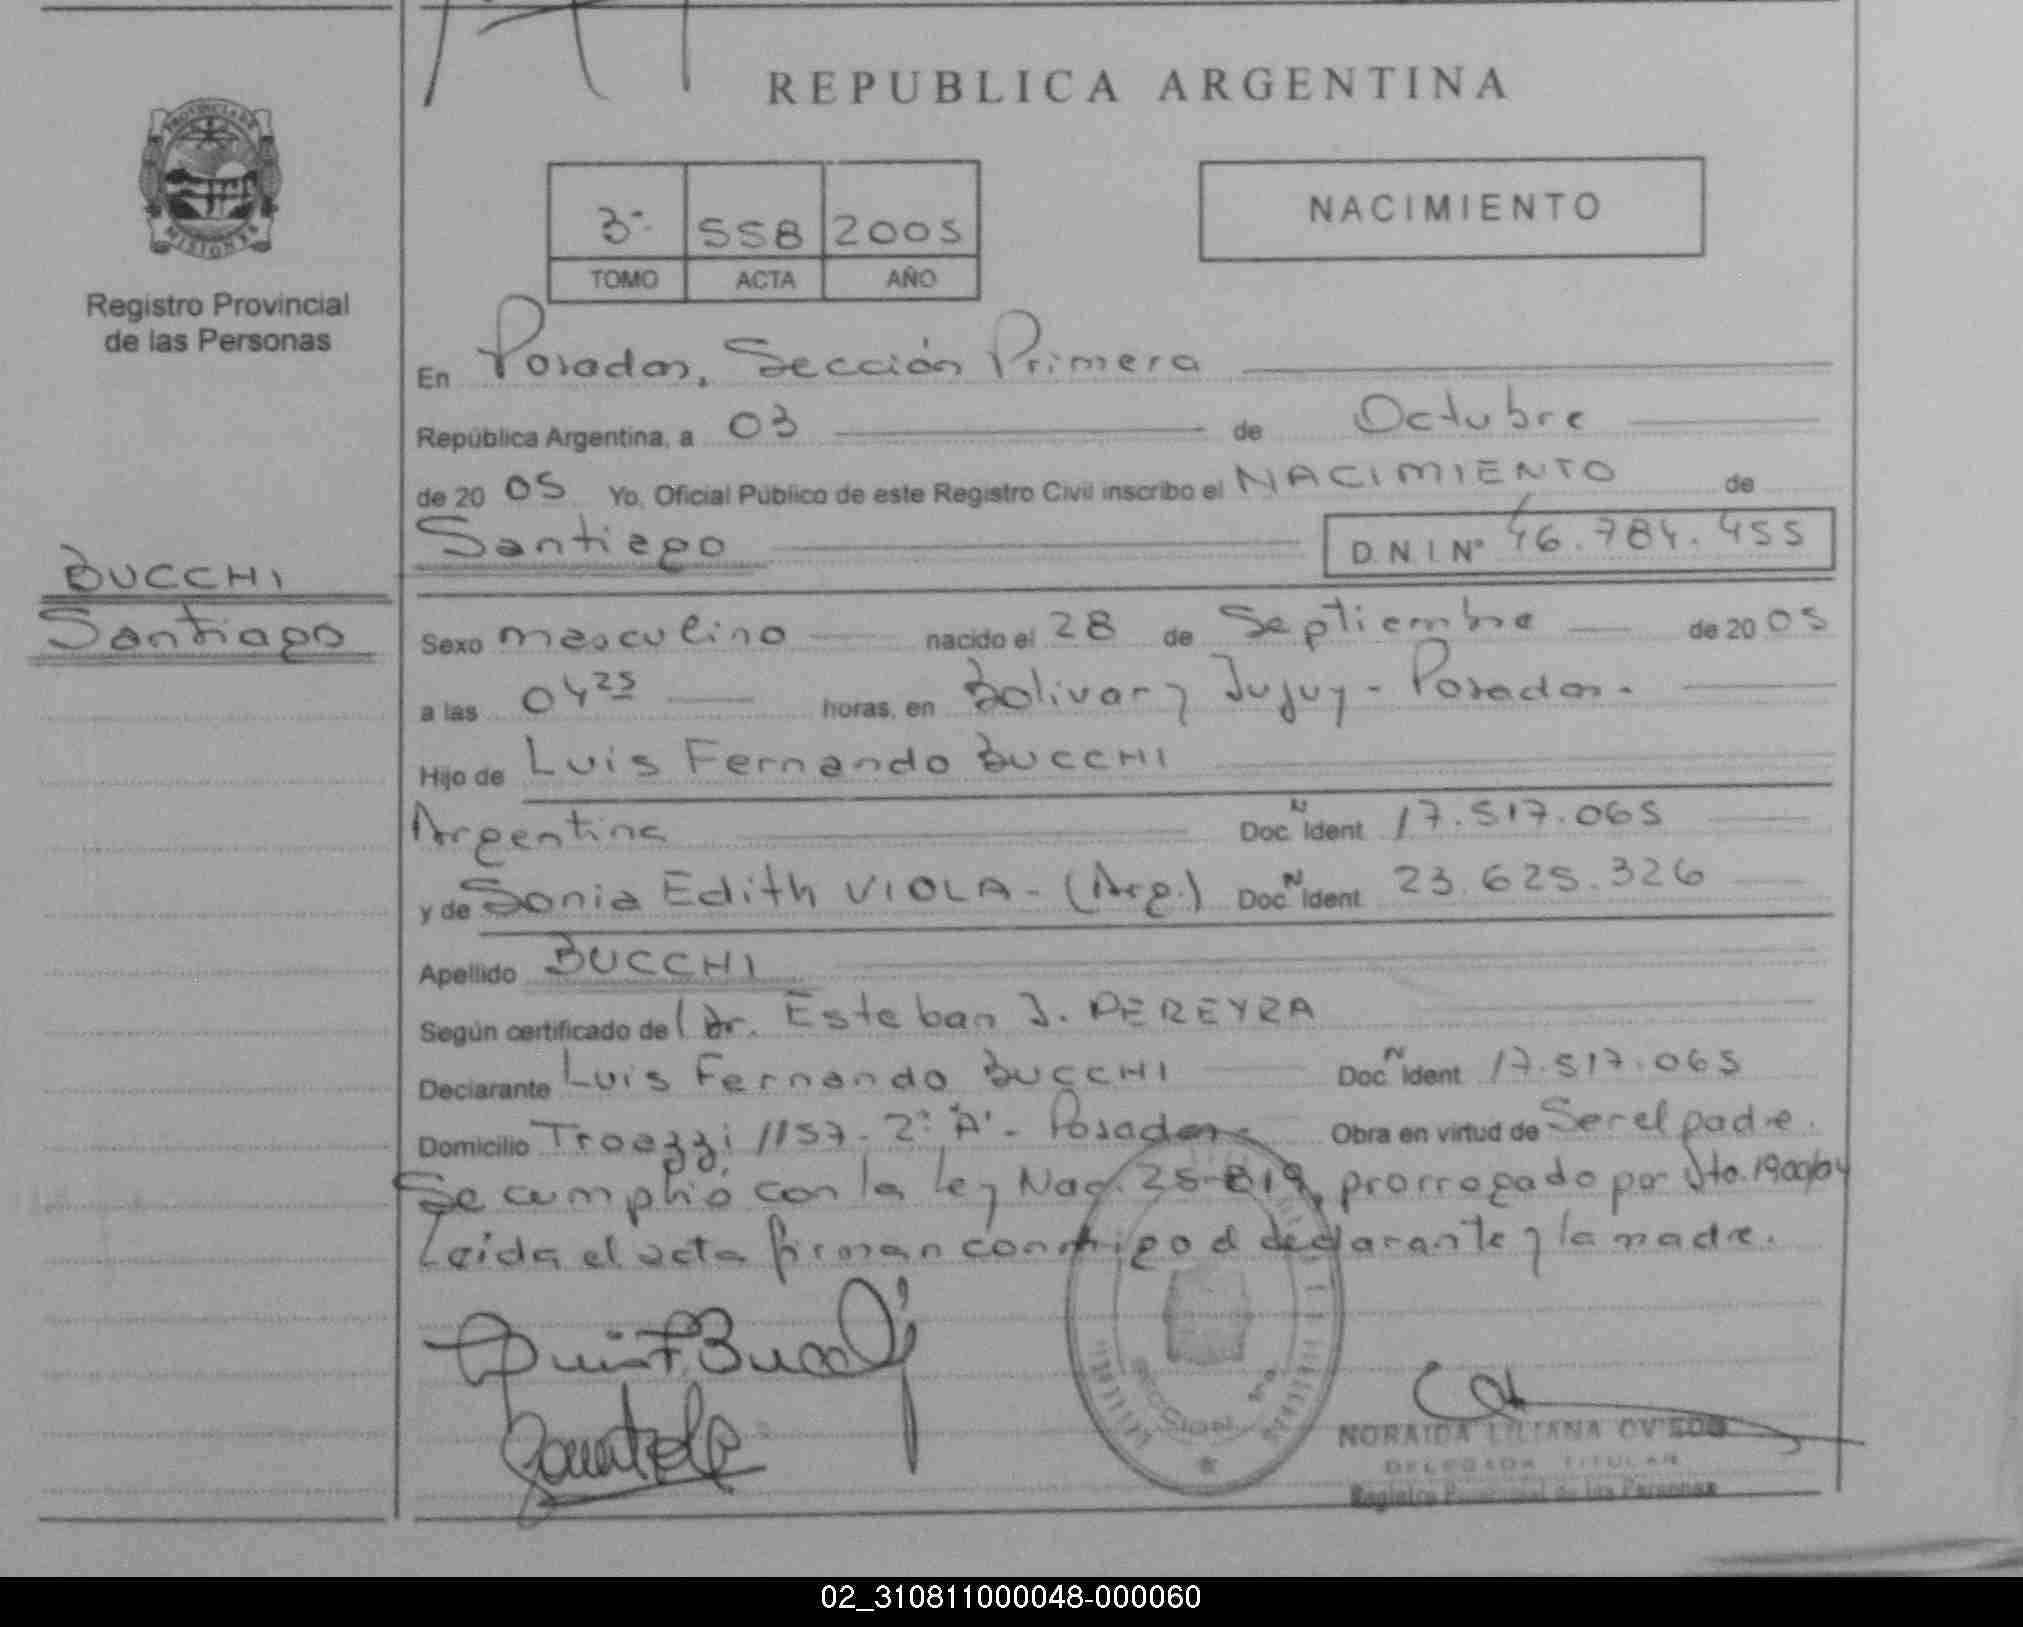 REPUBLICA ARGENTINA
PROVINCIA DE
MISIONES
Registro Provincial
de las Personas
3º 558 2005
TOMO ACTA AÑO
NACIMIENTO
En Posadas, Sección Primera
República Argentina, a 03 de Octubre
de 20 05 Yo, Oficial Público de este Registro Civil inscribo el NACIMIENTO de
Santiago D.N.I. Nº 46.784.455
BUCCHI
Santiago
Sexo masculino nacido el 28 de Septiembre de 20 05
a las 04 25 horas, en Bolivar y Jujuy - Posadas.
Hijo de Luis Fernando BUCCHI
Argentina Doc. N Ident 17.517.065
y de Sonia Edith VIOLA - (Arg.) Doc. N Ident 23.625.326
Apellido BUCCHI
Según certificado de l Dr. Esteban J. PEREYRA
Declarante Luis Fernando BUCCHI Doc. N Ident 17.517.065
Domicilio 1157 - 2º "A" - Posadas Obra en virtud de Ser el padre.
Se cumplió con la ley Nac. 25-819, prorrogado por Dto. 1900/04
Leída el acta firman conmigo el declarante y la madre.
SECCIONAL 1ra
NORAIDA LILIANA OVIEDO
DELEGADA TITULAR
Registro Provincial de las Personas
02_310811000048-000060